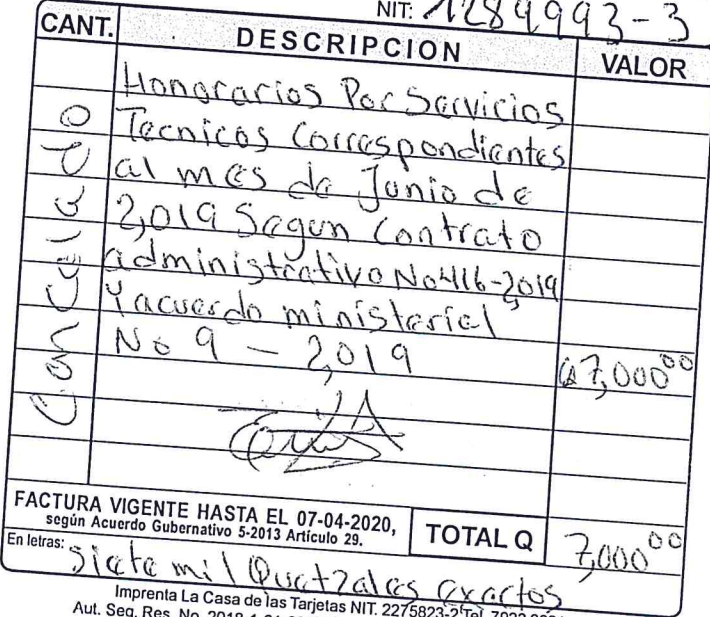 NIT: 1284993-3
CANT. DESCRIPCION VALOR
Honorarios Por Servicios
Tecnicos Correspondientes
al mes de Junio de
2,019 Segun Contrato
administrativo No 416-2,019
Y acuerdo ministerial
No 9 - 2,019 Q 7,000.00
Cancelado
FACTURA VIGENTE HASTA EL 07-04-2020,
según Acuerdo Gubernativo 5-2013 Artículo 29.
TOTAL Q 7,000.00
En letras: Siete mil Quetzales exactos
Imprenta La Casa de las Tarjetas NIT. 2275823-2 Tel.
Aut. Seg. Res. No.